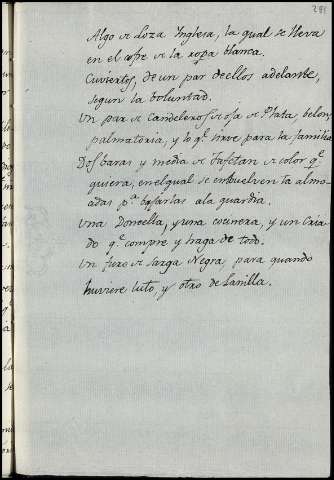 Algo de Loza Inglesa, la qual se lleva
en el cofre de la ropa blanca.
Cuviertos, de un par de ellos adelante,
segun la voluntad.
Un par de Candeleros de Plata, belon,
palmatoria, y lo q.e sirve para la familia
Dos baras y media de Tafetan de color q.e
quiera, en el qual se embuelven ta almo-
adas p.a bajarlas a la guardia.
Una Doncella, y una cocinera, y un Cria-
do q.e compre y haga de todo.
Un forro de sarga Negra, para quando
huviere luto, y otro de Lanilla.